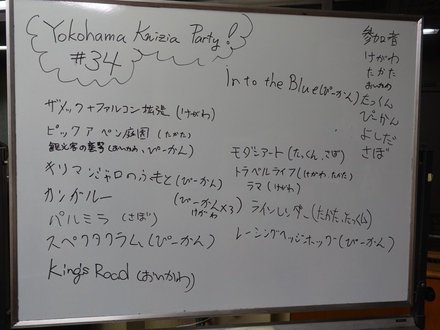 Yokohama Knizia Party!
#34
参加者
けがわ
たかた
おいかわ
たっくん
ぴーかん
よしだ
さぼ
Into the Blue(ぴーかん)
ザメック+ファルコン拡張(けがわ)
ピックアペン庭園(たかた)
観光客の襲撃(おいかわ、ぴーかん)
キリマンジャロのふもと(ぴーかん)
カンガルー(ぴーかん×3)
けがわ
パルミラ(さぼ)
スペクタクラム(ぴーかん)
King's Road(おいかわ)
モダンアート(たっくん、さぼ)
トラベルライフ(けがわ、たかた)
ラマ(けがわ)
ラインレンダー(たかた、たっくん)
レーシングヘッジホッグ(ぴーかん)